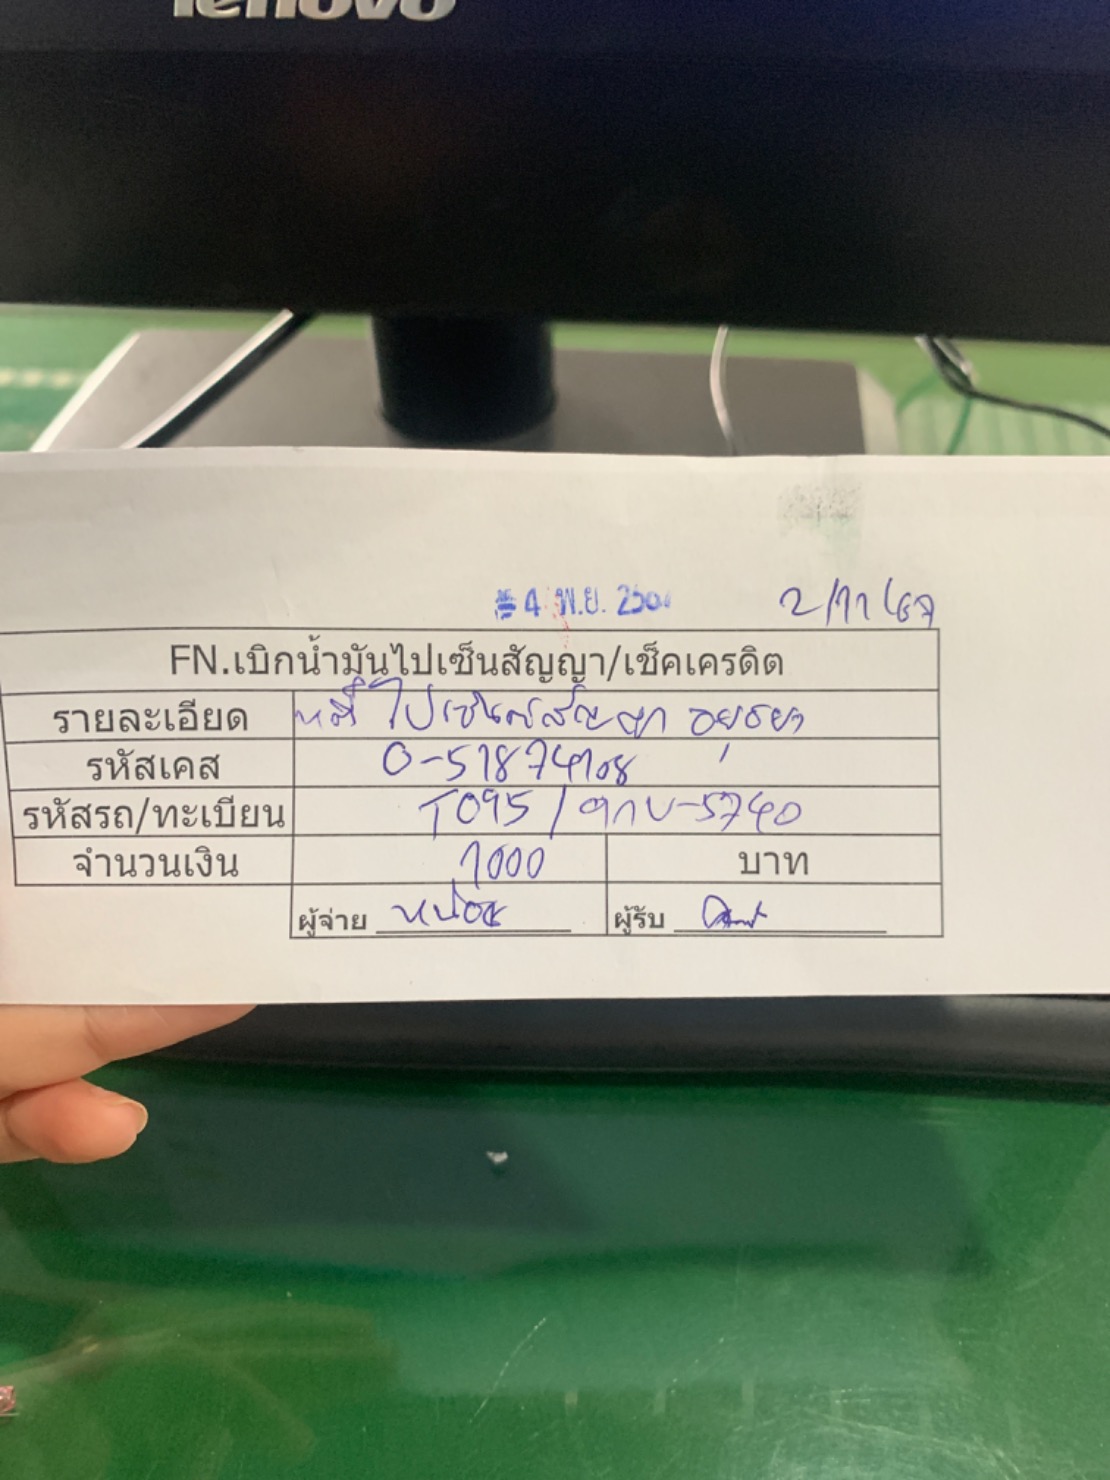 lenovo
4 พ.ย. 2/11/67
FN.เบิกน้ำมันไปเซ็นสัญญา/เช็คเครดิต
รายละเอียด ไปเซ็นสัญญา อยุธยา
รหัสเคส 0-51874108
รหัสรถ/ทะเบียน T095 / ฅกบ-5740
จำนวนเงิน 1000 บาท
ผู้จ่าย หน่อย ผู้รับ